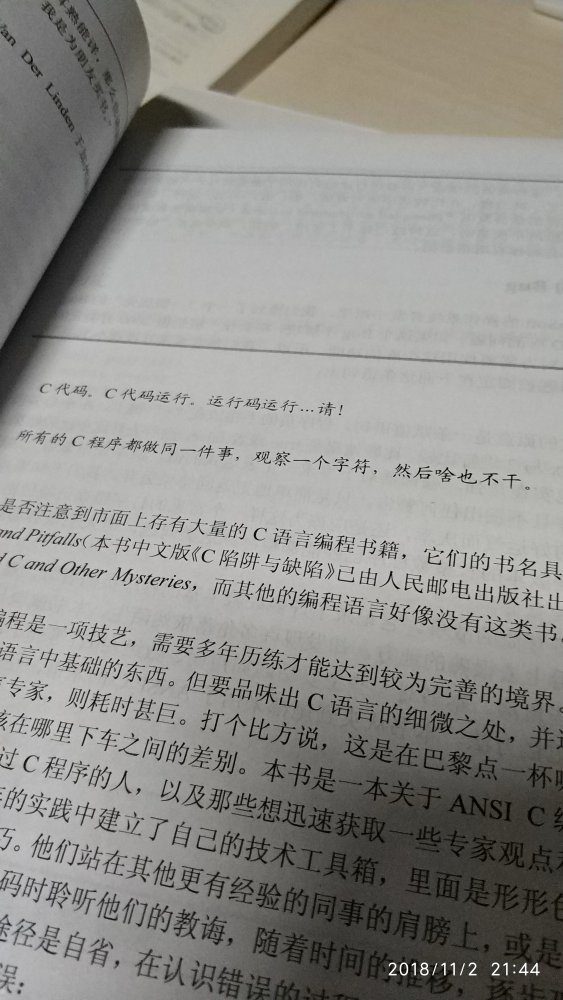 我是为朋友买书。”
Van Der Linden 于
C 代码。C 代码运行。运行码运行…请！
所有的 C 程序都做同一件事，观察一个字符，然后啥也不干。
是否注意到市面上存有大量的 C 语言编程书籍，它们的书名具
and Pitfalls(本书中文版《C 陷阱与缺陷》已由人民邮电出版社出
C and Other Mysteries，而其他的编程语言好像没有这类书
编程是一项技艺，需要多年历练才能达到较为完善的境界。
语言中基础的东西。但要品味出 C 语言的细微之处，并
专家，则耗时甚巨。打个比方说，这是在巴黎点一杯
在哪里下车之间的差别。本书是一本关于 ANSI C
过 C 程序的人，以及那些想迅速获取一些专家观点
的实践中建立了自己的技术工具箱，里面是形形色
巧。他们站在其他更有经验的同事的肩膀上，或是
码时聆听他们的教诲，随着时间的推移，逐步
途径是自省，在认识错误的过
误：
2018/11/2 21:44